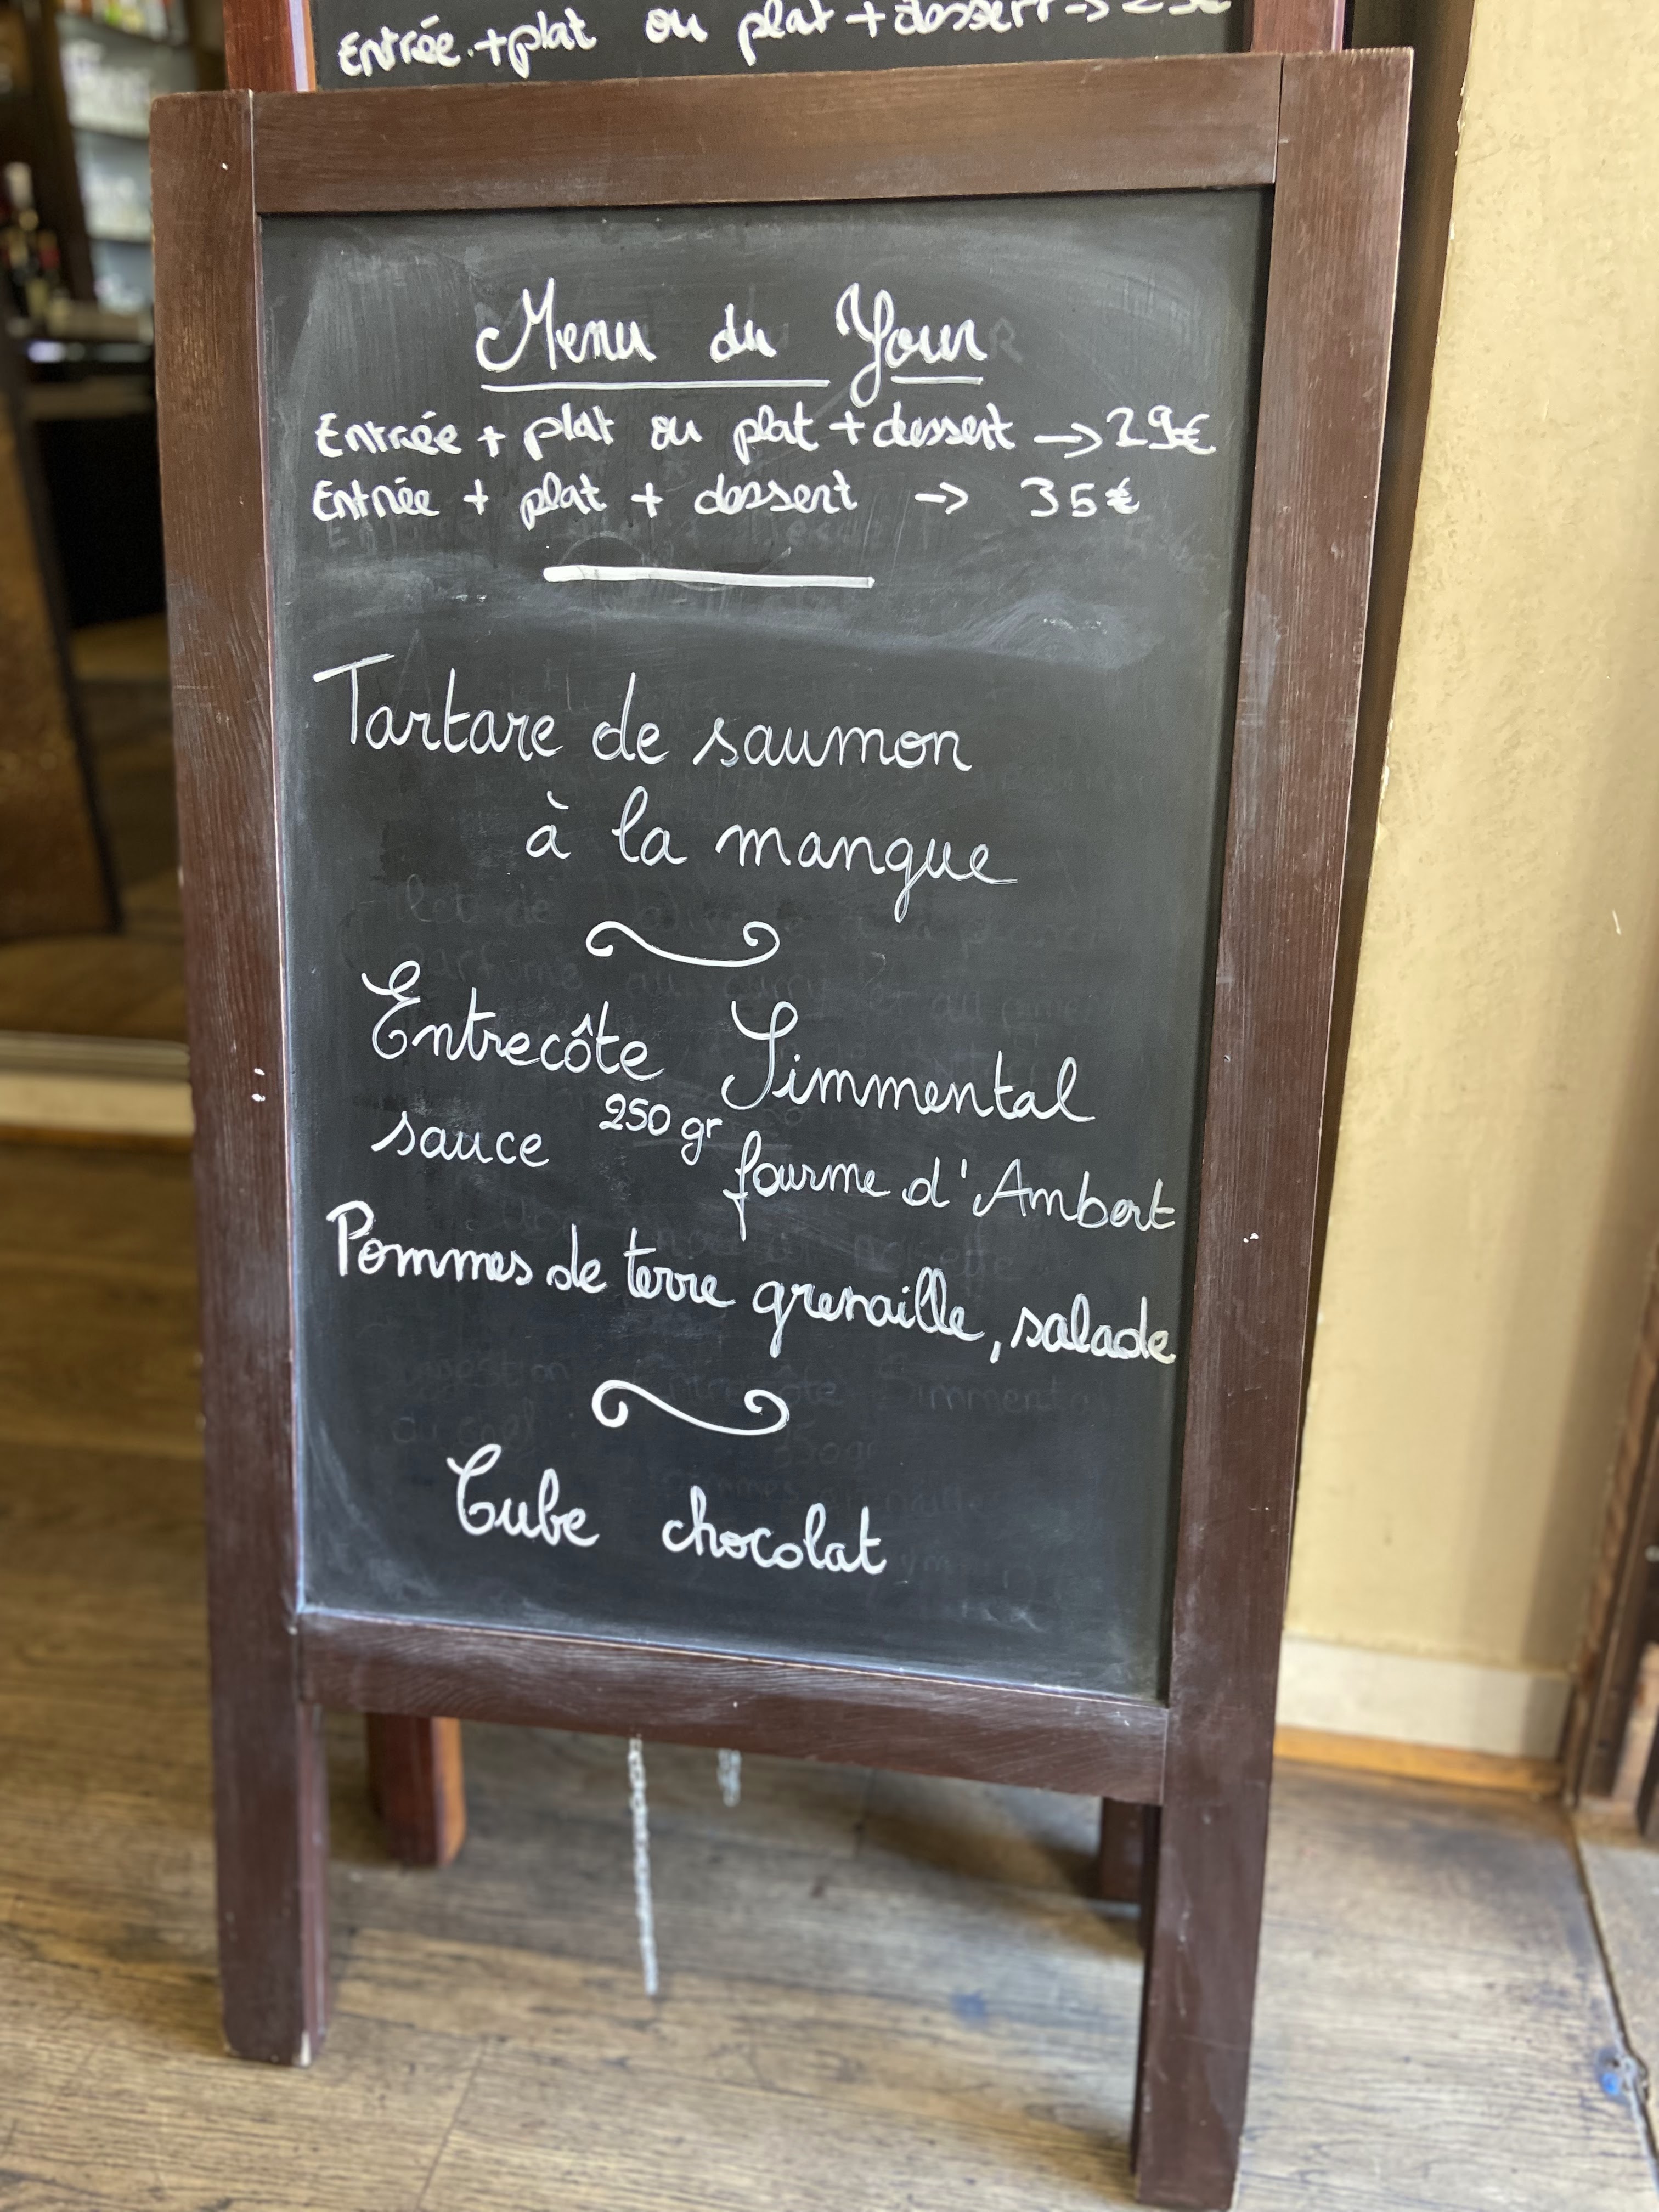 Entrée + plat ou plat + dessert → 25€
Menu du Jour
Entrée + plat ou plat + dessert → 29€
Entrée + plat + dessert → 35€
Tartare de saumon
à la mangue
Entrecôte Simmental
250 gr
sauce fourme d'Ambert
Pommes de terre grenaille, salade
Cube chocolat